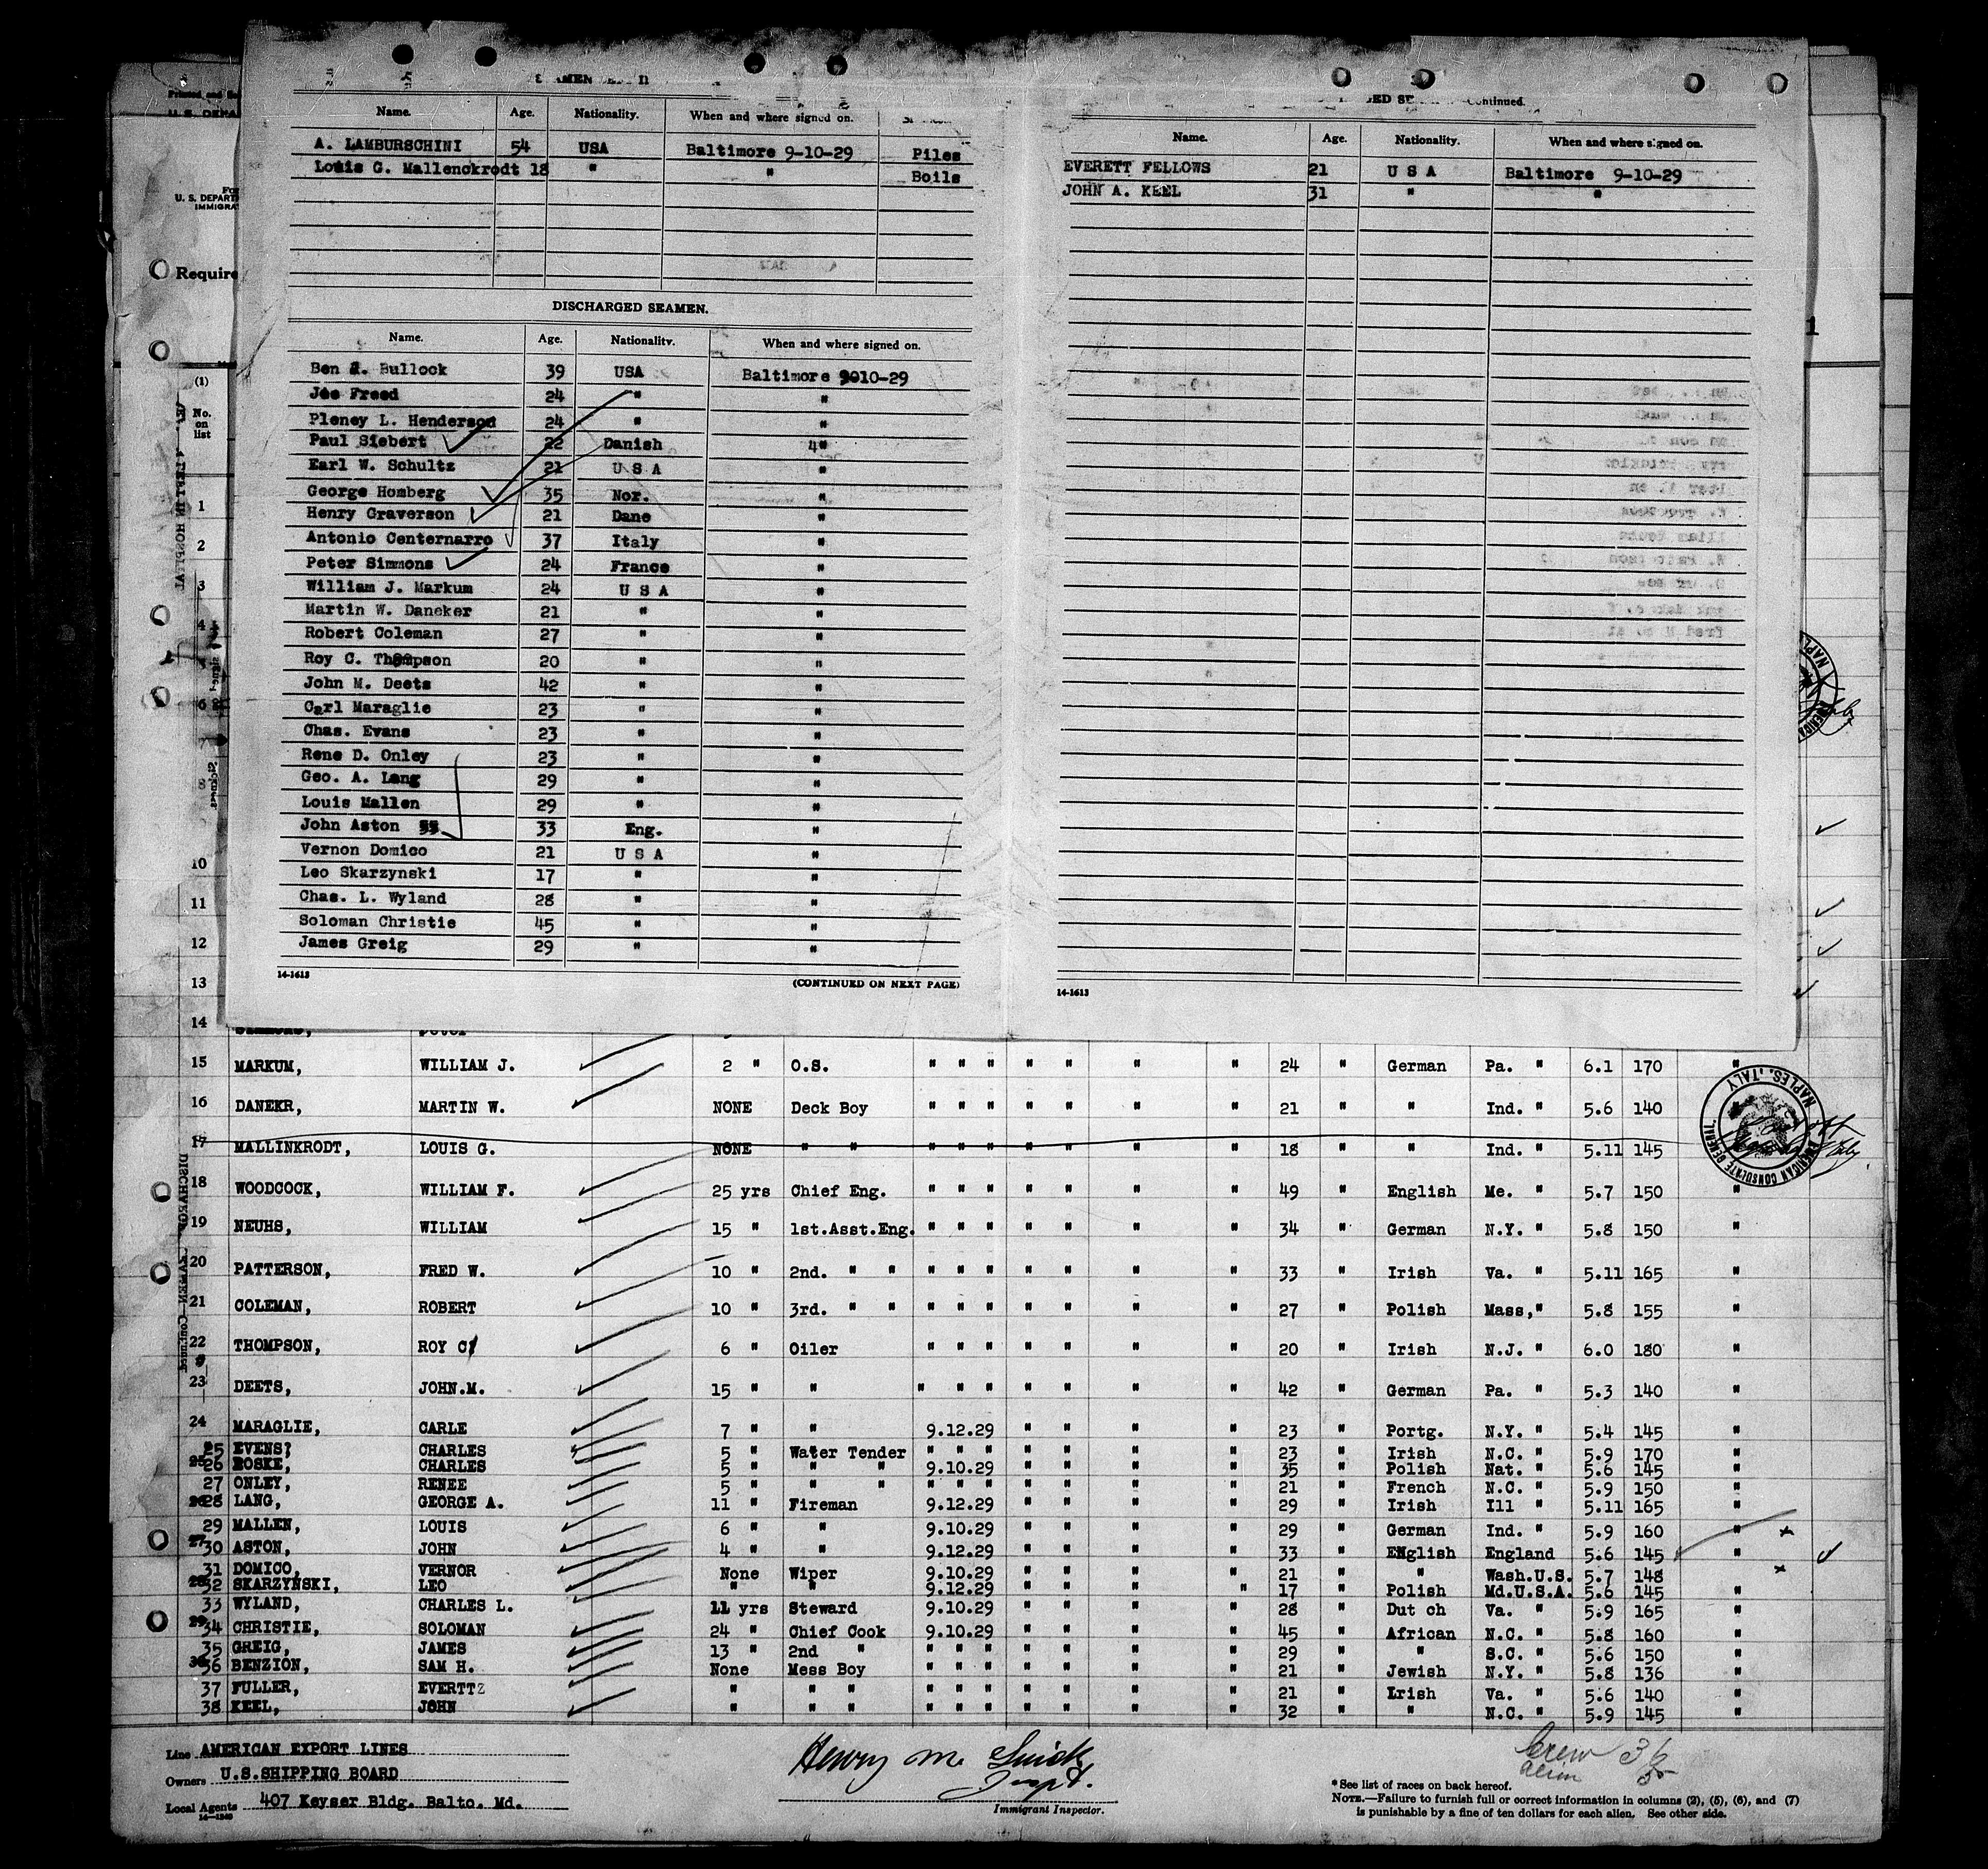 SEAMEN
Name. Age. Nationality. When and where signed on.
A. LAMBURSCHINI 54 USA Baltimore 9-10-29 Piles
Louis G. Mallenckrodt 18 " " Boils
DISCHARGED SEAMEN.
Name. Age. Nationality. When and where signed on.
Ben Bullock 39 USA Baltimore 9010-29
Joe Freed 24 " "
Pleney L. Henderson 24 " "
Paul Siebert 22 Danish 4"
Earl W. Schultz 21 U S A "
George Homberg 35 Nor. "
Henry Graverson 21 Dane "
Antonio Centernarro 37 Italy "
Peter Simmons 24 France "
William J. Markum 24 U S A "
Martin W. Daneker 21 " "
Robert Coleman 27 " "
Roy C. Thompson 20 " "
John M. Deets 42 " "
Carl Maraglie 23 " "
Chas. Evans 23 " "
Rene D. Onley 23 " "
Geo. A. Lang 29 " "
Louis Mallen 29 " "
John Aston 33 Eng. "
Vernon Domico 21 U S A "
Leo Skarzynski 17 " "
Chas. L. Wyland 28 " "
Soloman Christie 45 " "
James Greig 29 " "
14-1613 (CONTINUED ON NEXT PAGE)
Continued.
Name. Age. Nationality. When and where signed on.
EVERETT FELLOWS 21 U S A Baltimore 9-10-29
JOHN A. KEEL 31 " "
14-1613
U. S. DEPART
IMMIGRA
Require
(1)
No. on list
1
2
3
4
6
8
10
11
12
13
14
15 MARKUM, WILLIAM J. 2 " O.S. " " " " " " " 24 " German Pa. " 6.1 170 "
16 DANEKR, MARTIN W. NONE Deck Boy " " " " " " " 21 " " Ind. " 5.6 140
17 MALLINKRODT, LOUIS G. NONE " " " " " " " " " 18 " " Ind. " 5.11 145
18 WOODCOCK, WILLIAM F. 25 yrs Chief Eng. " " " " " " " 49 " English Me. " 5.7 150 "
19 NEUHS, WILLIAM 15 " 1st.Asst.Eng. " " " " " " " 34 " German N.Y. " 5.8 150 "
20 PATTERSON, FRED W. 10 " 2nd. " " " " " " " " " 33 " Irish Va. " 5.11 165 "
21 COLEMAN, ROBERT 10 " 3rd. " " " " " " " " " 27 " Polish Mass," 5.8 155 "
22 THOMPSON, ROY C. 6 " Oiler " " " " " " " 20 " Irish N.J. " 6.0 180 "
23 DEETS, JOHN.M. 15 " " " " " " " " " 42 " German Pa. " 5.3 140 "
24 MARAGLIE, CARLE 7 " " 9.12.29 " " " " 23 " Portg. N.Y. " 5.4 145 "
25 EVENS? CHARLES 5 " Water Tender " " " " " " " 23 " Irish N.C. " 5.9 170 "
26 BOSKE, CHARLES 5 " " " 9.10.29 " " " " 35 " Polish Nat. " 5.6 145 "
27 ONLEY, RENEE 5 " " " " " " " " " " 21 " French N.C. " 5.9 150 "
28 LANG, GEORGE A. 11 " Fireman 9.12.29 " " " " 29 " Irish Ill " 5.11 165 "
29 MALLEN, LOUIS 6 " " 9.10.29 " " " " 29 " German Ind. " 5.9 160 "
30 ASTON, JOHN 4 " " 9.12.29 " " " " 33 " ENglish England 5.6 145 "
31 DOMICO, VERNOR None Wiper 9.10.29 " " " " 21 " " Wash.U.S. 5.7 148
32 SKARZYNSKI, LEO " " 9.12.29 " " " " 17 " Polish Md.U.S.A. 5.6 145 "
33 WYLAND, CHARLES L. 11 yrs Steward 9.10.29 " " " " 28 " Dut ch Va. " 5.9 165 "
34 CHRISTIE, SOLOMAN 24 " Chief Cook 9.10.29 " " " " 45 " African N.C. " 5.8 160 "
35 GREIG, JAMES 13 " 2nd " " " " " " " " 29 " " S.C. " 5.6 150 "
36 BENZION, SAM H. None Mess Boy " " " " " " " 21 " Jewish N.Y. " 5.8 136 "
37 FULLER, EVERTTZ " " " " " " " " " " 21 " Irish Va. " 5.6 140 "
38 KEEL, JOHN " " " " " " " " " " 32 " " N.C. " 5.9 145 "
NAPLES, ITALY
AMERICAN CONSULATE GENERAL
Line AMERICAN EXPORT LINES
Owners U.S.SHIPPING BOARD
Local Agents 407 Keyser Bldg. Balto. Md.
14-1240
Henry M.
Inspt.
Immigrant Inspector.
Crew 36
Alien 5
*See list of races on back hereof.
NOTE.—Failure to furnish full or correct information in columns (2), (5), (6), and (7)
is punishable by a fine of ten dollars for each alien. See other side.